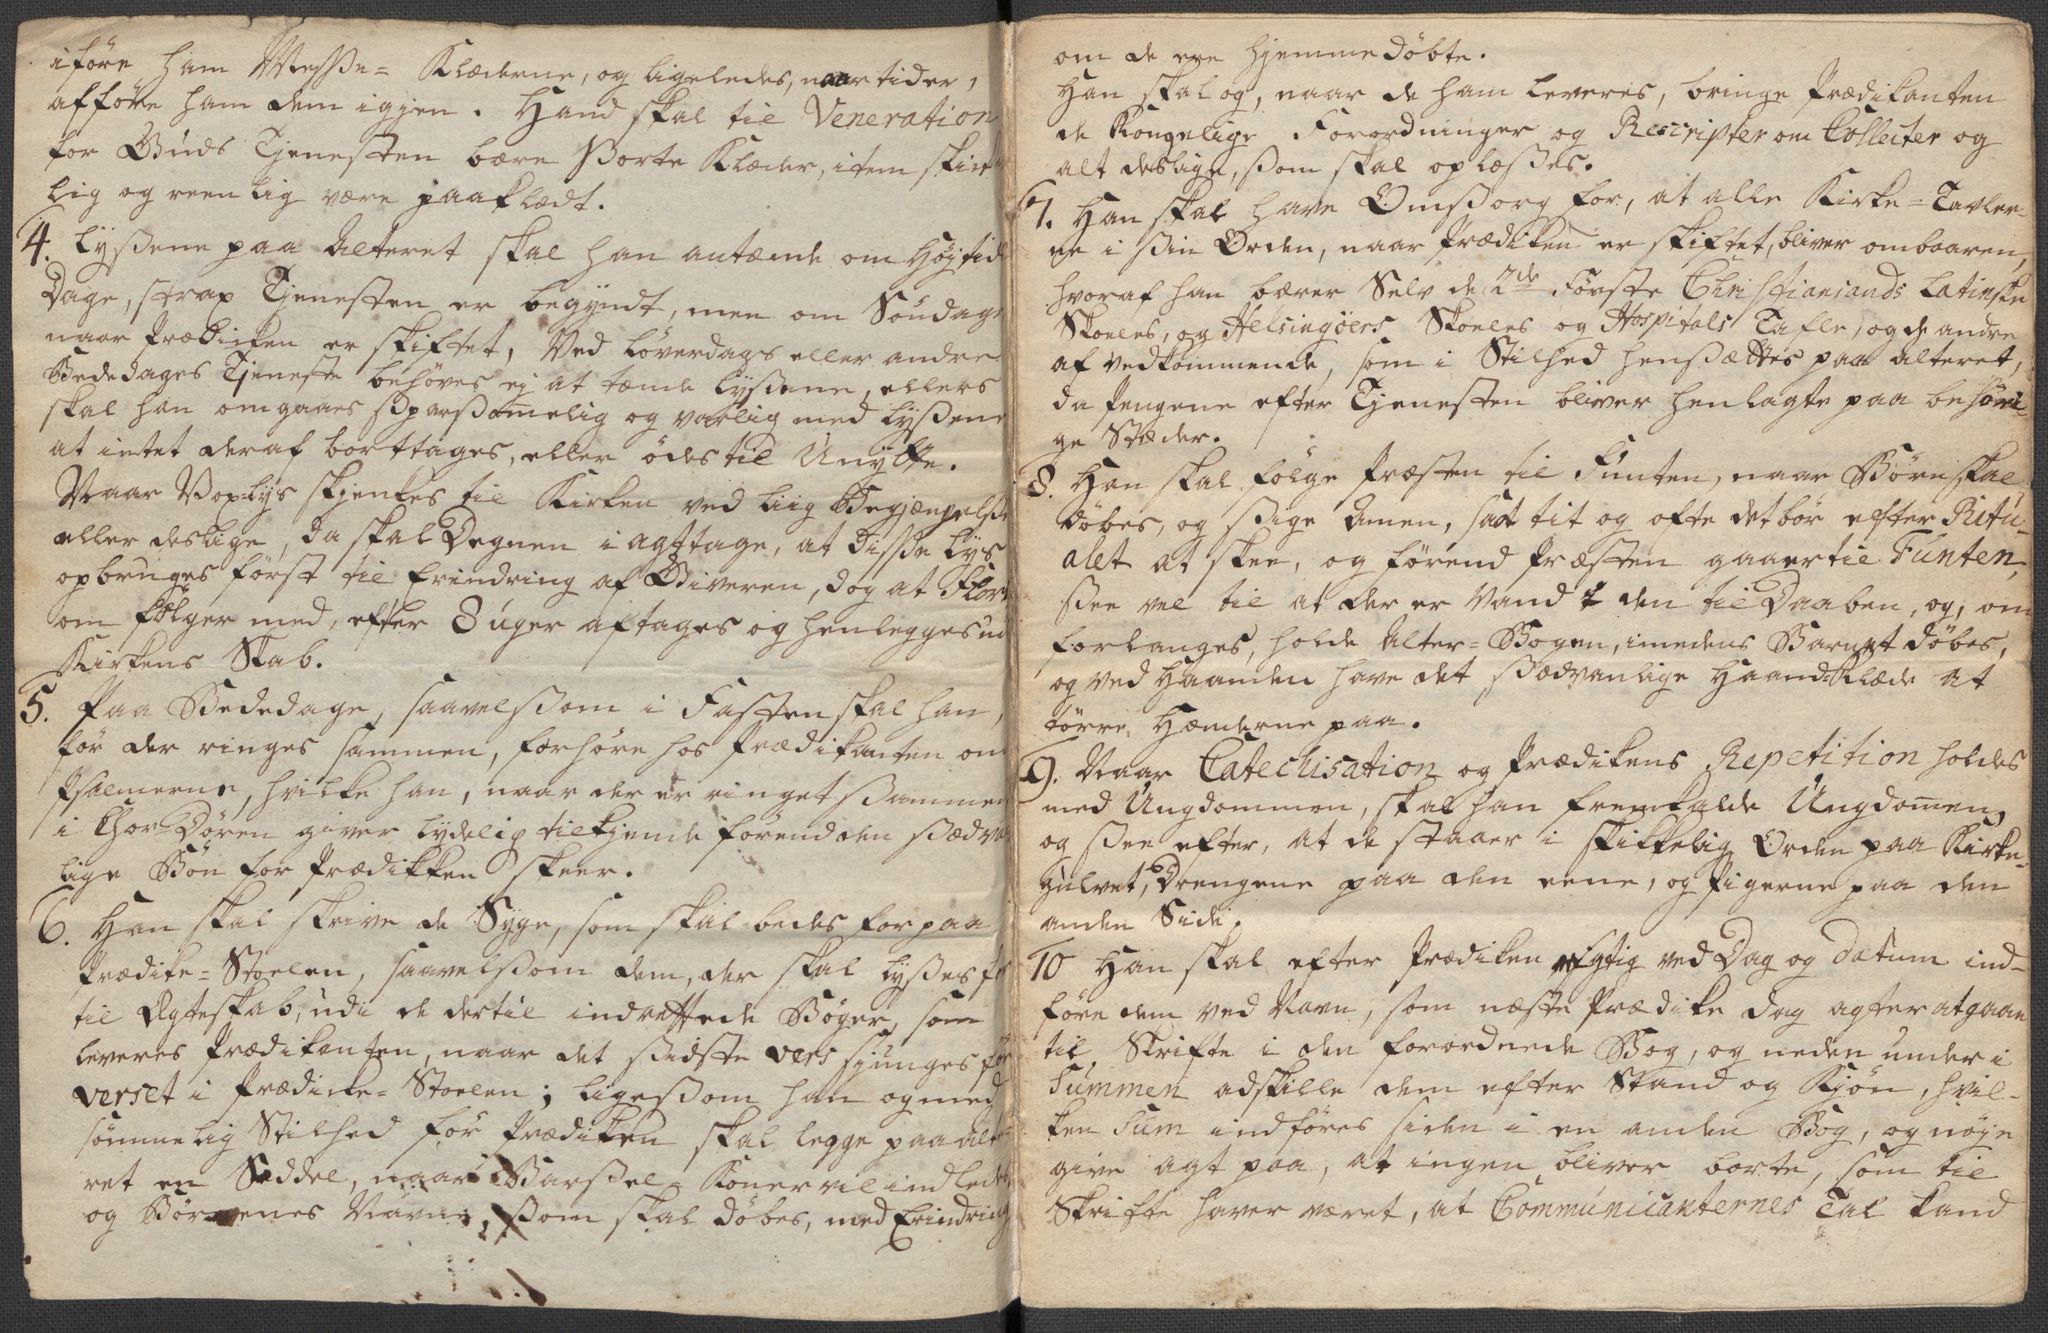 iføre ham Messe= Klæderne, og ligeledes, naar tider,
afføre ham dem igjen. Hand skal til Veneration
for Guds Tjenesten bære sorte Klæder, item skik
lig og reenlig være paaklædt.
4. Lyßene paa Alteret skal han antænde om Høytids
Dage, strax Tjenesten er begyndt, men om Søndags
naar Prædiken er skiftet, Ved Løverdags eller andre
Bededages Tjeneste behøves ej at tænde Lyßene, ellers
skal han omgaaes sparßommelig og varlig med Lyßene
at intet deraf borttages, eller ödes til Unytte.
Naar Vox-Lys skjenkes til Kirken ved Liig Begjængelse
eller deslige, da skal Degnen i agttage, at diße Lys
opbruges først til Erindring af Giveren, dog at Flor
om følger med, efter 8 uger aftages og henlegges ud
Kirkens Skab.
5. Paa Bededage, saavelßom i Fasten skal han,
før der ringes sammen, forhøre hos Prædikanten om
Psalmerne, hvilke han, naar der er ringet ßammen
i Chor Døren giver lydelig tilkjende førend den ßædvan
lige Bön for Prædikken skeer.
6. Han skal skrive de Syge, som skal bedes for paa
Prædike= Stoelen, saavelßom dem, der skal lyßes for
til Ægteskab, udi de dertil indrettede Bøger, som
leveres Prædikanten, naar det ßidste vers sjunges før
verset i Prædike= Stoelen; ligeßom han og med
sömmelig Stilhed før Prædiken skal legge paa Alte=
ret en Seddel, naar Barßel= Koner vil indledes
og Børnenes Navne, ßom skal döbes, med Erindring
om de ere hjemmedöbte.
Han skal og, naar de ham leveres, bringe Prædikanten
de Kongelige Forordninger og Rescripter om Collecter og
alt deslige, ßom skal oplæßes.
7. Han skal have Omßorg for, at alle Kirke= Tavler=
ne i ßin Orden, naar Prædiken er skiftet, bliver ombaaren,
hvoraf han bærer Selv de 2de Første Christiansands Latinske
Skoeles, og Helsingöers Skoeles og Hospitals Tafle, og de andre
af vedkommende, som i Stilhed henßættes paa Alteret,
da Pengene efter Tjenesten bliver henlagte paa behøri=
ge Stæder.
8. Han skal følge Præsten til Funten, naar Börn skal
döbes, og ßige Amen, saa tit og ofte det bör efter Ritu=
alet at skee, og førend Præsten gaaer til Funten,
ßee vel til at der er Vand i den til Daaben, og, om
forlanges, holde Alter= Bogen, imedens Barnet döbes,
og ved Haanden have det ßædvanlige Haand-Klæde at
törre Hænderne paa.
9. Naar Catechisation og Prædikens Repetition holdes
med Ungdommen, skal han fremkalde Ungdomen,
og ßee efter, at de staaer i skikkelig Orden paa Kirke=
gulvet, Drengene paa den eene, og Pigerne paa den
anden Side.
10 Han skal efter Prædiken rigtig ved Dag og datum ind=
føre dem ved Navn, som næste Prædike Dag agter at gaae
til Skrifte i den forordnede Bog, og neden under i
Summen adskille dem efter Stand og Kjön, hvil=
ken Sum indføres siden i en anden Bog, og nöje
give agt paa, at ingen bliver borte, som til
Skrifte haver været, at Communicanternes Tal kand